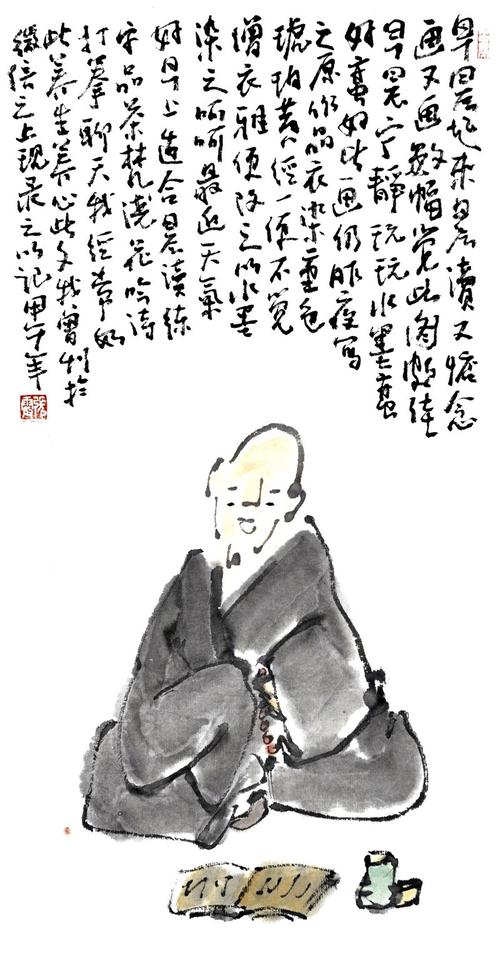 早晨起来晨读又惦念
画又画数幅觉此图颇佳
早晨宁静玩玩水墨蛮
好蛮好此画仍昨夜写
之原作品衣染重色
琥珀黄经一便不觉
僧衣雅便改之以水墨
染之呵呵最近天气
好早上适合晨读练
字品茶浇花吟诗
打拳聊天我经常如
此养生养心此文我曾刊於
微信之上现录之以记甲午年